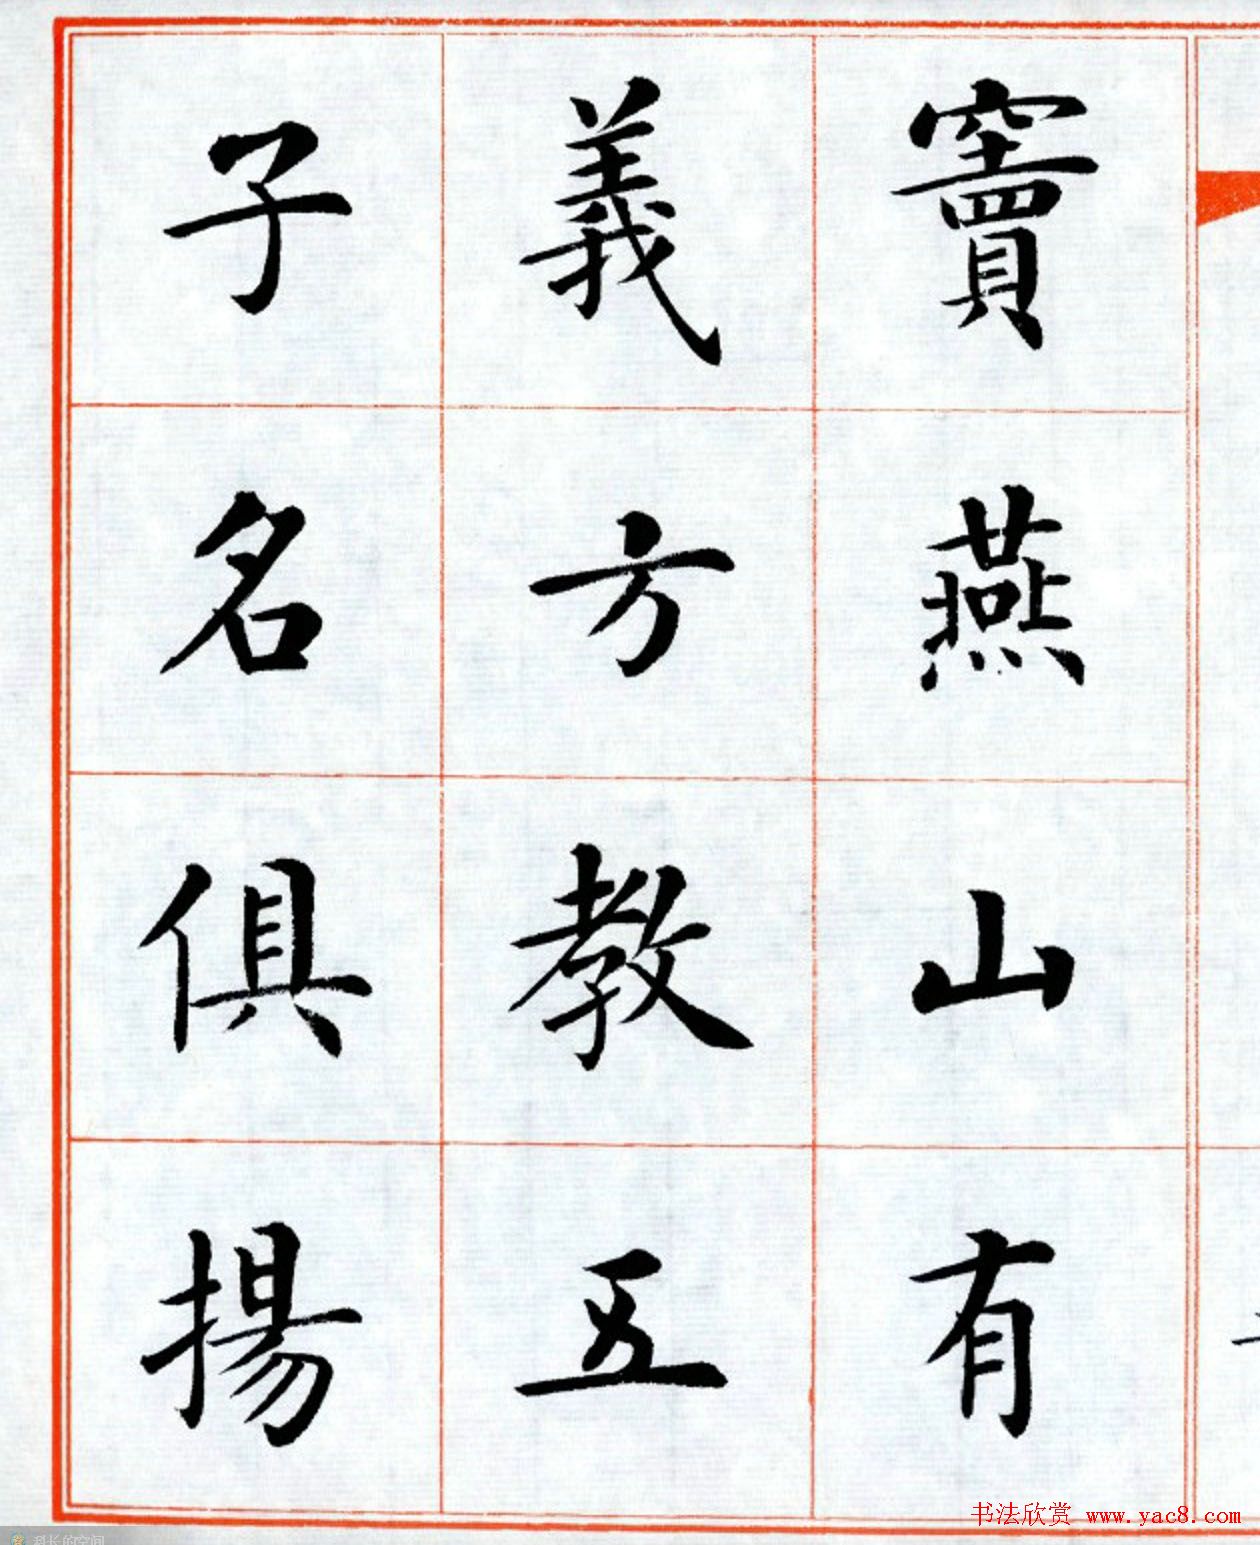 竇燕山有
義方教五
子名俱揚
书法欣赏 www.yac8.com
科长的空间